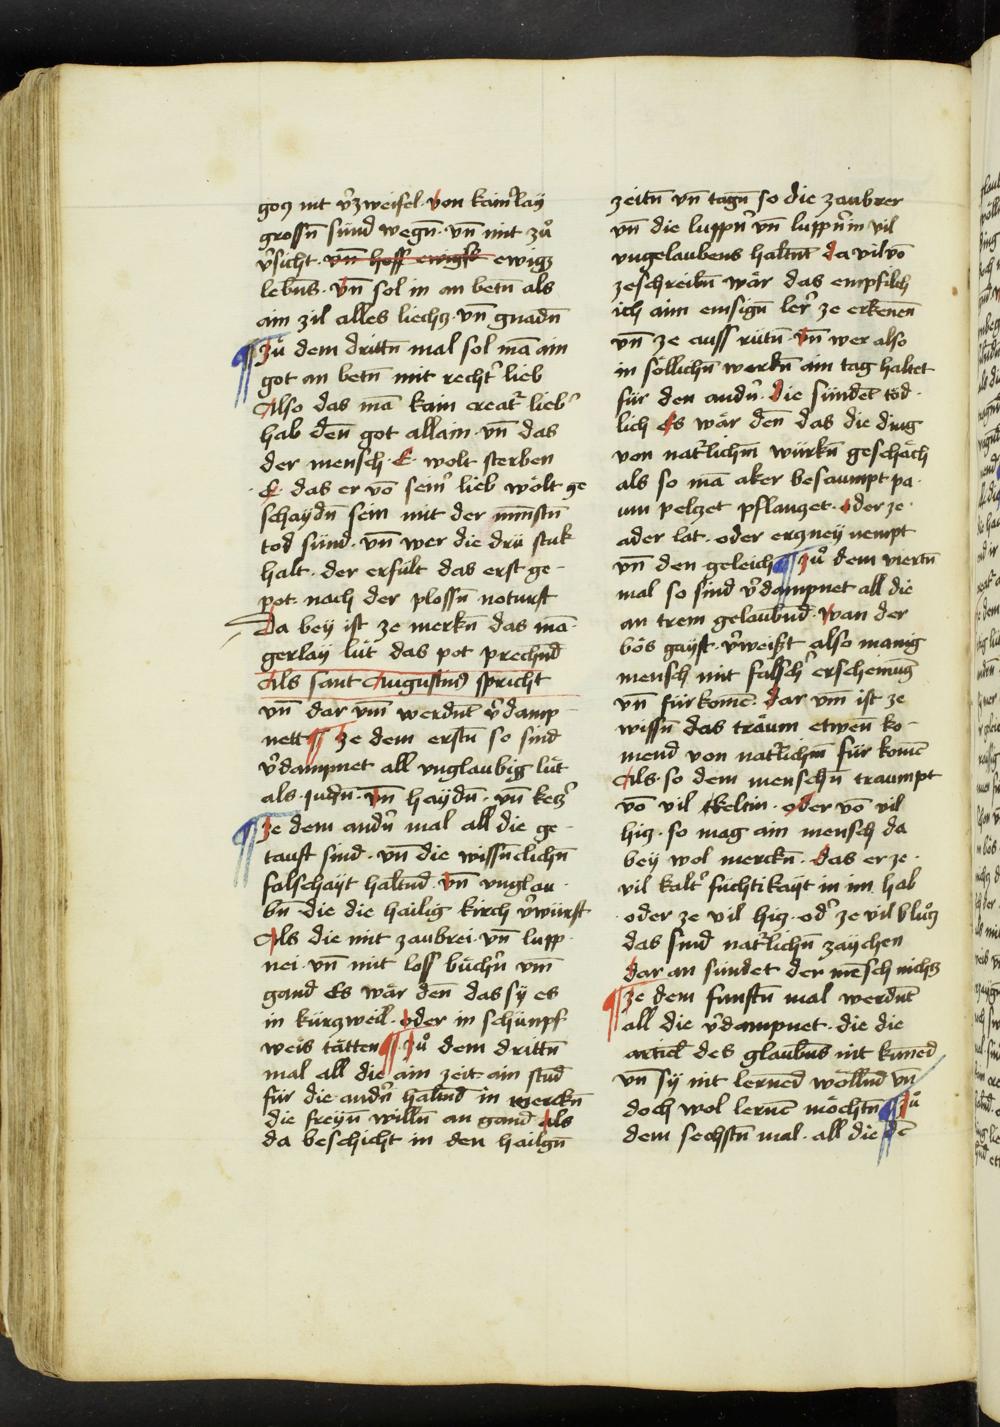 gotz nit v̾zweifel · von kain̾lay
grossn̄ sünd wegn̄ · vn̄ mit zů
v̾sicht · vn̄ hoff ewigs ewigz
lebn̄s · vn̄ sol in an betn̄ als
ain zil alles liechtz · vn̄ gnadn̄
¶ Zů dem drittn̄ mal sol mā ain
got an betn̄ mit recht̾ lieb
Also das mā kain creat᷑ lieb̾
hab den̄ got allain · vn̄ das
der mensch · E · wolt sterben
· E · das er vō sein̾ lieb wölt ge
schaydn̄ sein mit der minstn̄
tod sünd · vn̄ wer die drü stuk
halt · der erfült das erst ge-
pot nach der plossn̄ noturft
Da bey ist ze merkn̄ das mā-
gerlay lüt das pot prechnd̄
Als sant Augustin9 spricht
vn̄ dar vm̄ werdnt̄ v̾damp-
nett ¶ Ze dem erstn̄ so sind
v̾dampnet all vnglaubig lüt
als · judn̄ · vn̄ haydn̄ · vn̄ ketz̾
¶ Ze dem andn̾ mal all die ge-
tauft sind · vn̄ die wissn̄clichn̄
falschayt haltnd̄ · vn̄ vnglau-
bn̄ die die hailig kirch v̾würft
Als die mit zaubrei · vn̄ lupp-
nei · vn̄ mit loss büchn̾ vm̄
gand Es wär den̄ das sy es
in kürtzweil · oder in schimpf
weis tätten ¶ Zů dem drittn̄
mal all die ain zeit ain stund
für die andn̾ haltnd̄ in werckn̄
die freyn̄ willn̄ an gand als
da beschicht in den hailgn̄
zeitn̄ vn̄ tagn̄ so die zaubrer
vn̄ die luppn̾ vn̄ luppn̾in vil
vngelaubens haltnt̄ da vil vō
zeschreibn̄ wär das empfilch
ich aim einsign̄ ler̾ ze erkenen̄
vn̄ ze auss rütn̄ · vn̄ wer also
in söllichn̄ werkn̄ ain tag haltet
für den andn̾ · Die sündet̄ töd-
lich es wär den̄ das die ding
von nat᷑lichm̄ würkn̄ geschäch
als so mā aker besaumpt pa-
um peltzet pflantzet · oder ze ·
ader lat · oder ertzney nempt
vn̄ den geleich ¶ Zů dem viertn̄
mal so sind v̾dampnet all die
an trem gelaubnd̄ · wan der
bös gayst · v̾weißt also manig
mensch mit falsch̾ erscheinūg
vn̄ fürkome̅ · Dar vm̄ ist ze
wissn̄ das träum etwen̄ ko-
mend von nat᷑lichm̄ für komē
Als · so dem menschn̄ traumpt
vō vil kelten · oder vō vil
hitz · so mag ain mensch da
bey wol merckn̄ · das er ze ·
vil kalt̾ füchtikayt in im hab
· oder ze vil hitz · od̾ ze vil blůtz
das sind nat᷑lichn̄ zaychen
dar an sündet der mēsch nichtz
¶ Ze dem funftn̄ mal werdnt̄
all die v̾dampnet · die die
artickel des glaubn̄s nit kūned
vn̄ sy nit lernēd wöllnd̄ vn̄
doch wol lernē möchtn̄ ¶ Zů
dem sechstn̄ mal · all die dē